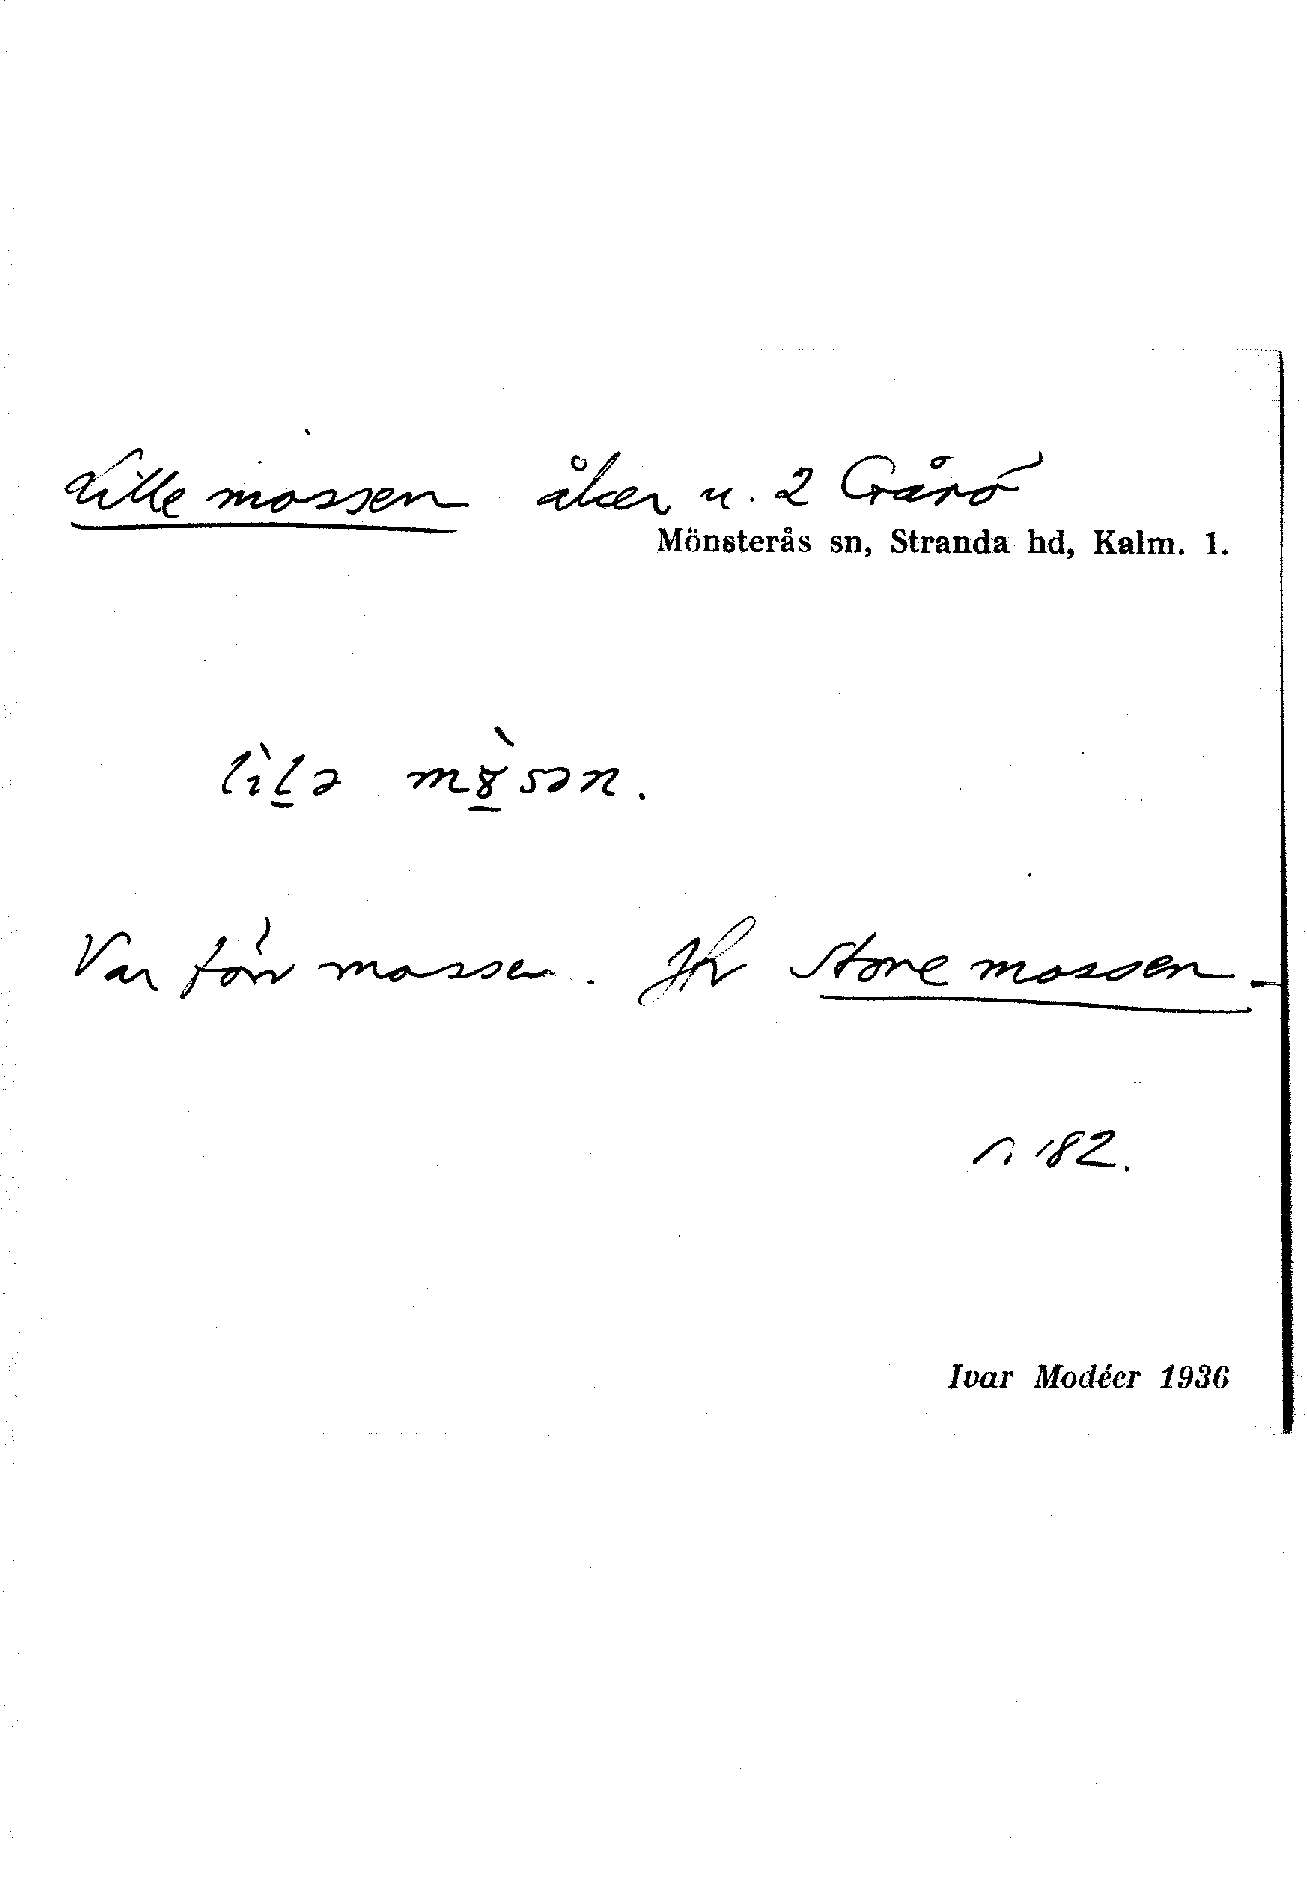 Lille mossen åker u. 2 Gåsö
Mönsterås sn, Stranda hd, Kalm. l.
lìlə mò̱sən.
Var förr mossen. Jfr Store mossen.
s. 182.
Ivar Modéer 1936